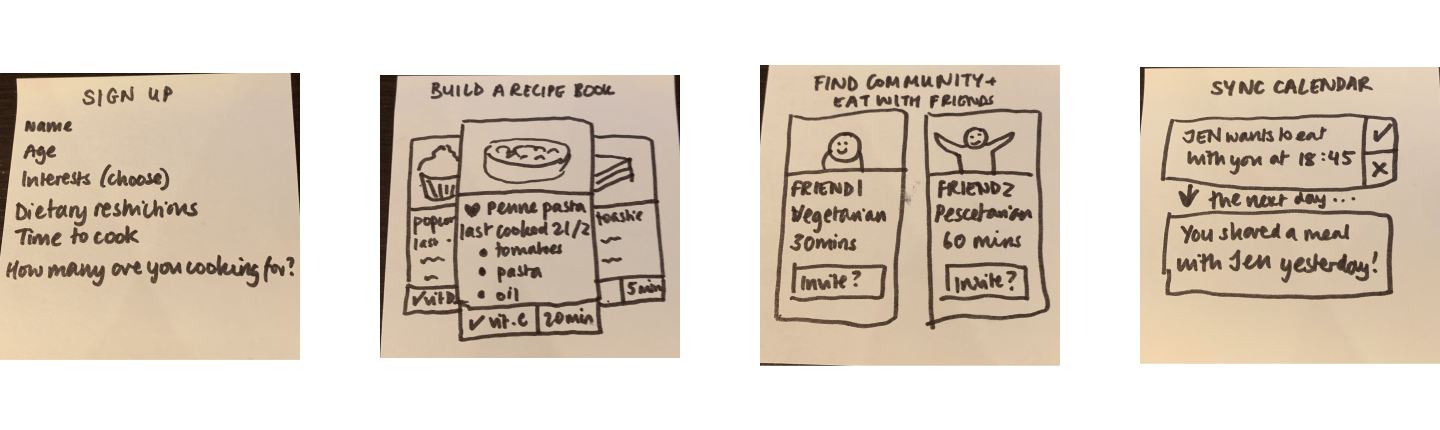 SIGN UP
Name
Age
Interests (choose)
Dietary restrictions
Time to cook
How many are you cooking for?
BUILD A RECIPE BOOK
popcor
last
✓ vit D
♥ Penne pasta
last cooked 21/2
• tomatoes
• pasta
• oil
✓ vit. C 20min
toastie
5min
FIND COMMUNITY +
EAT WITH FRIENDS
FRIEND1
Vegetarian
30mins
Invite?
FRIEND2
Pescetarian
60 mins
Invite?
SYNC CALENDAR
JEN wants to eat
with you at 18:45
↓ the next day...
You shared a meal
with Jen yesterday!